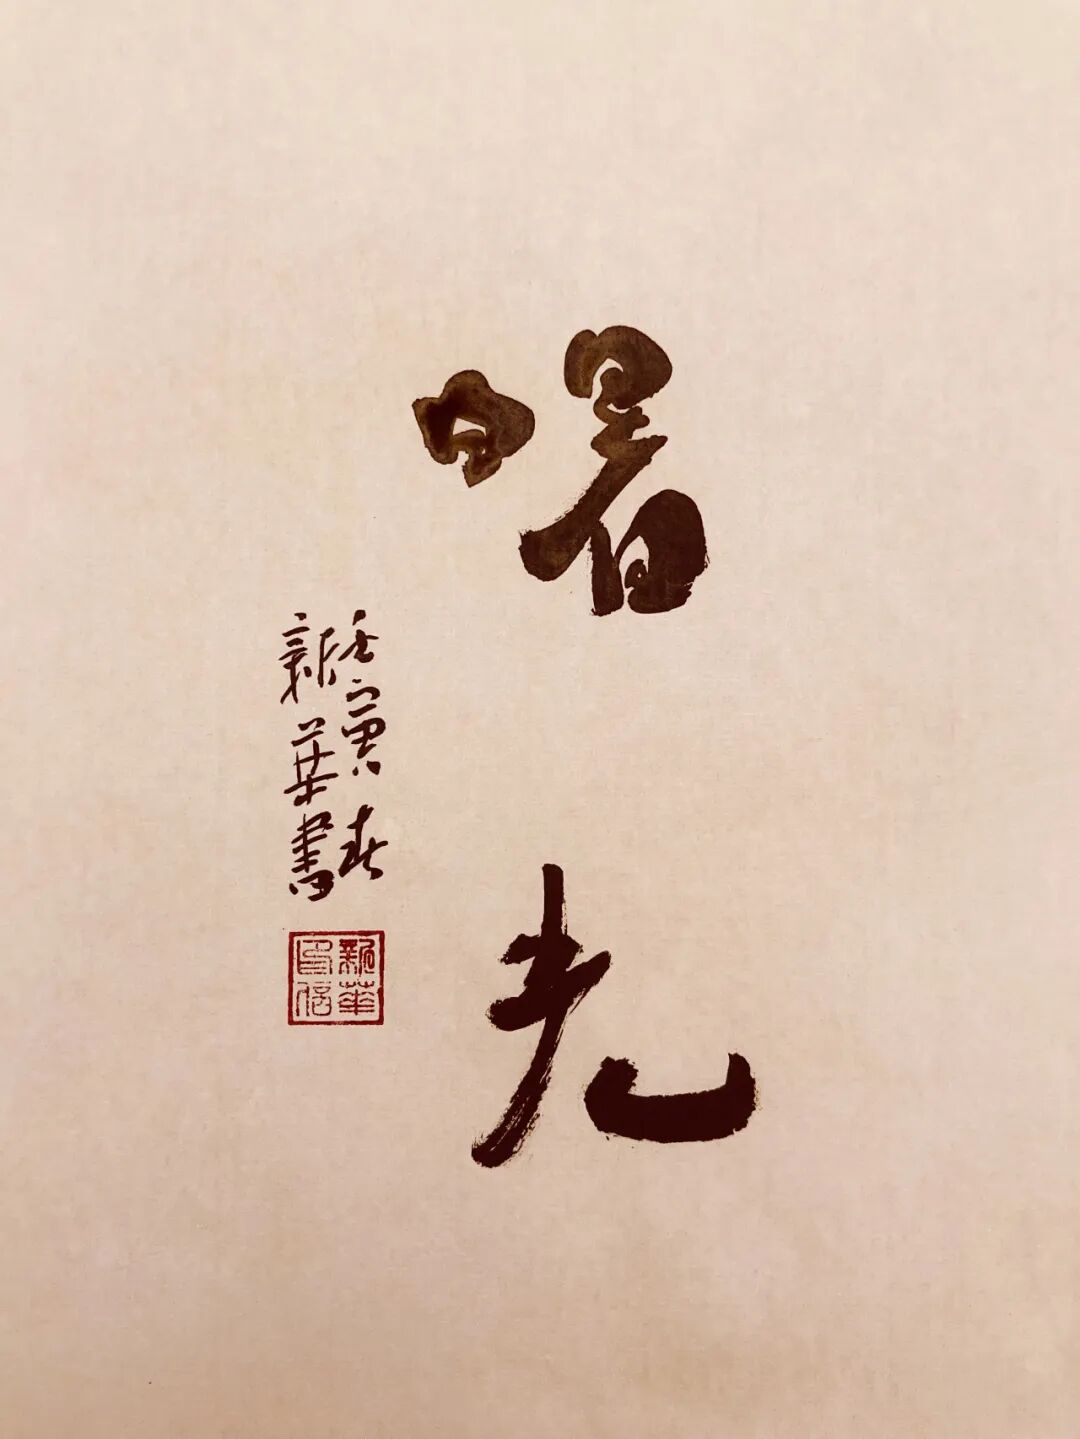 曙光
壬寅春
新華書
新華
印信